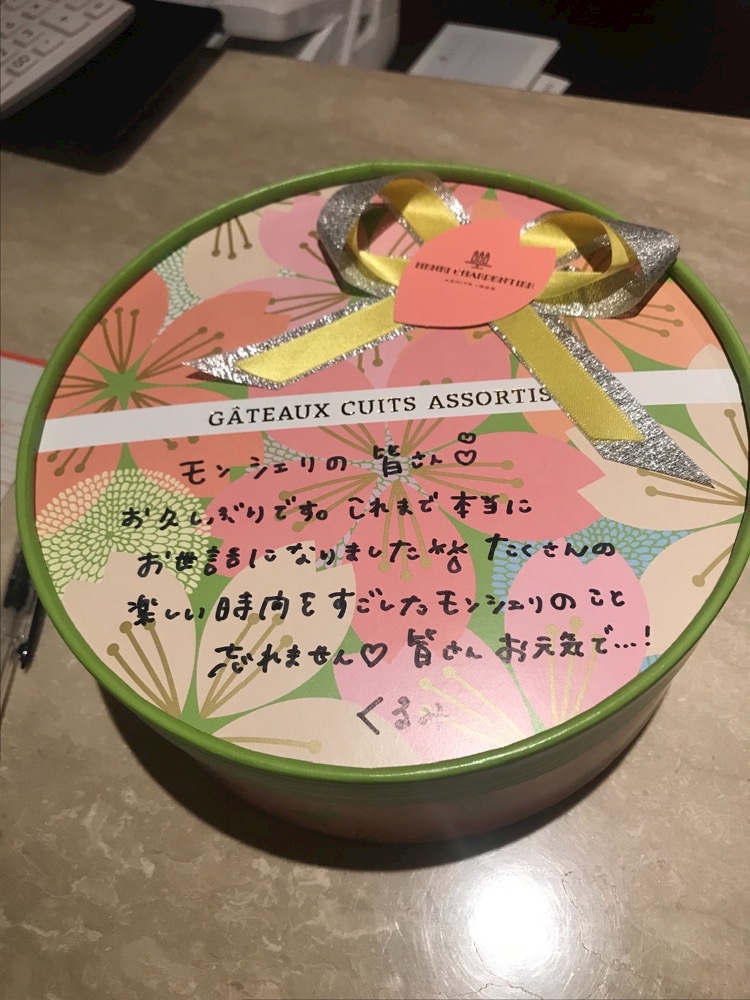 HENRI CHARPENTIER
ASHIYA・1969
GÂTEAUX CUITS ASSORTIS
モンシェリの 皆さん♡
お久しぶりです。これまで本当に
お世話になりました たくさんの
楽しい時間をすごしたモンシェリのこと
忘れません♡ 皆さんお元気で…!
くるみ